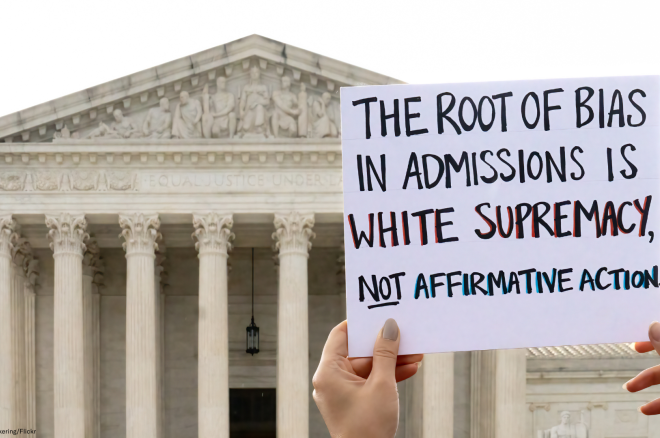 EQUAL JUSTICE UNDER
THE ROOT OF BIAS
IN ADMISSIONS IS
WHITE SUPREMACY,
NOT AFFIRMATIVE ACTION.
kering/Flickr